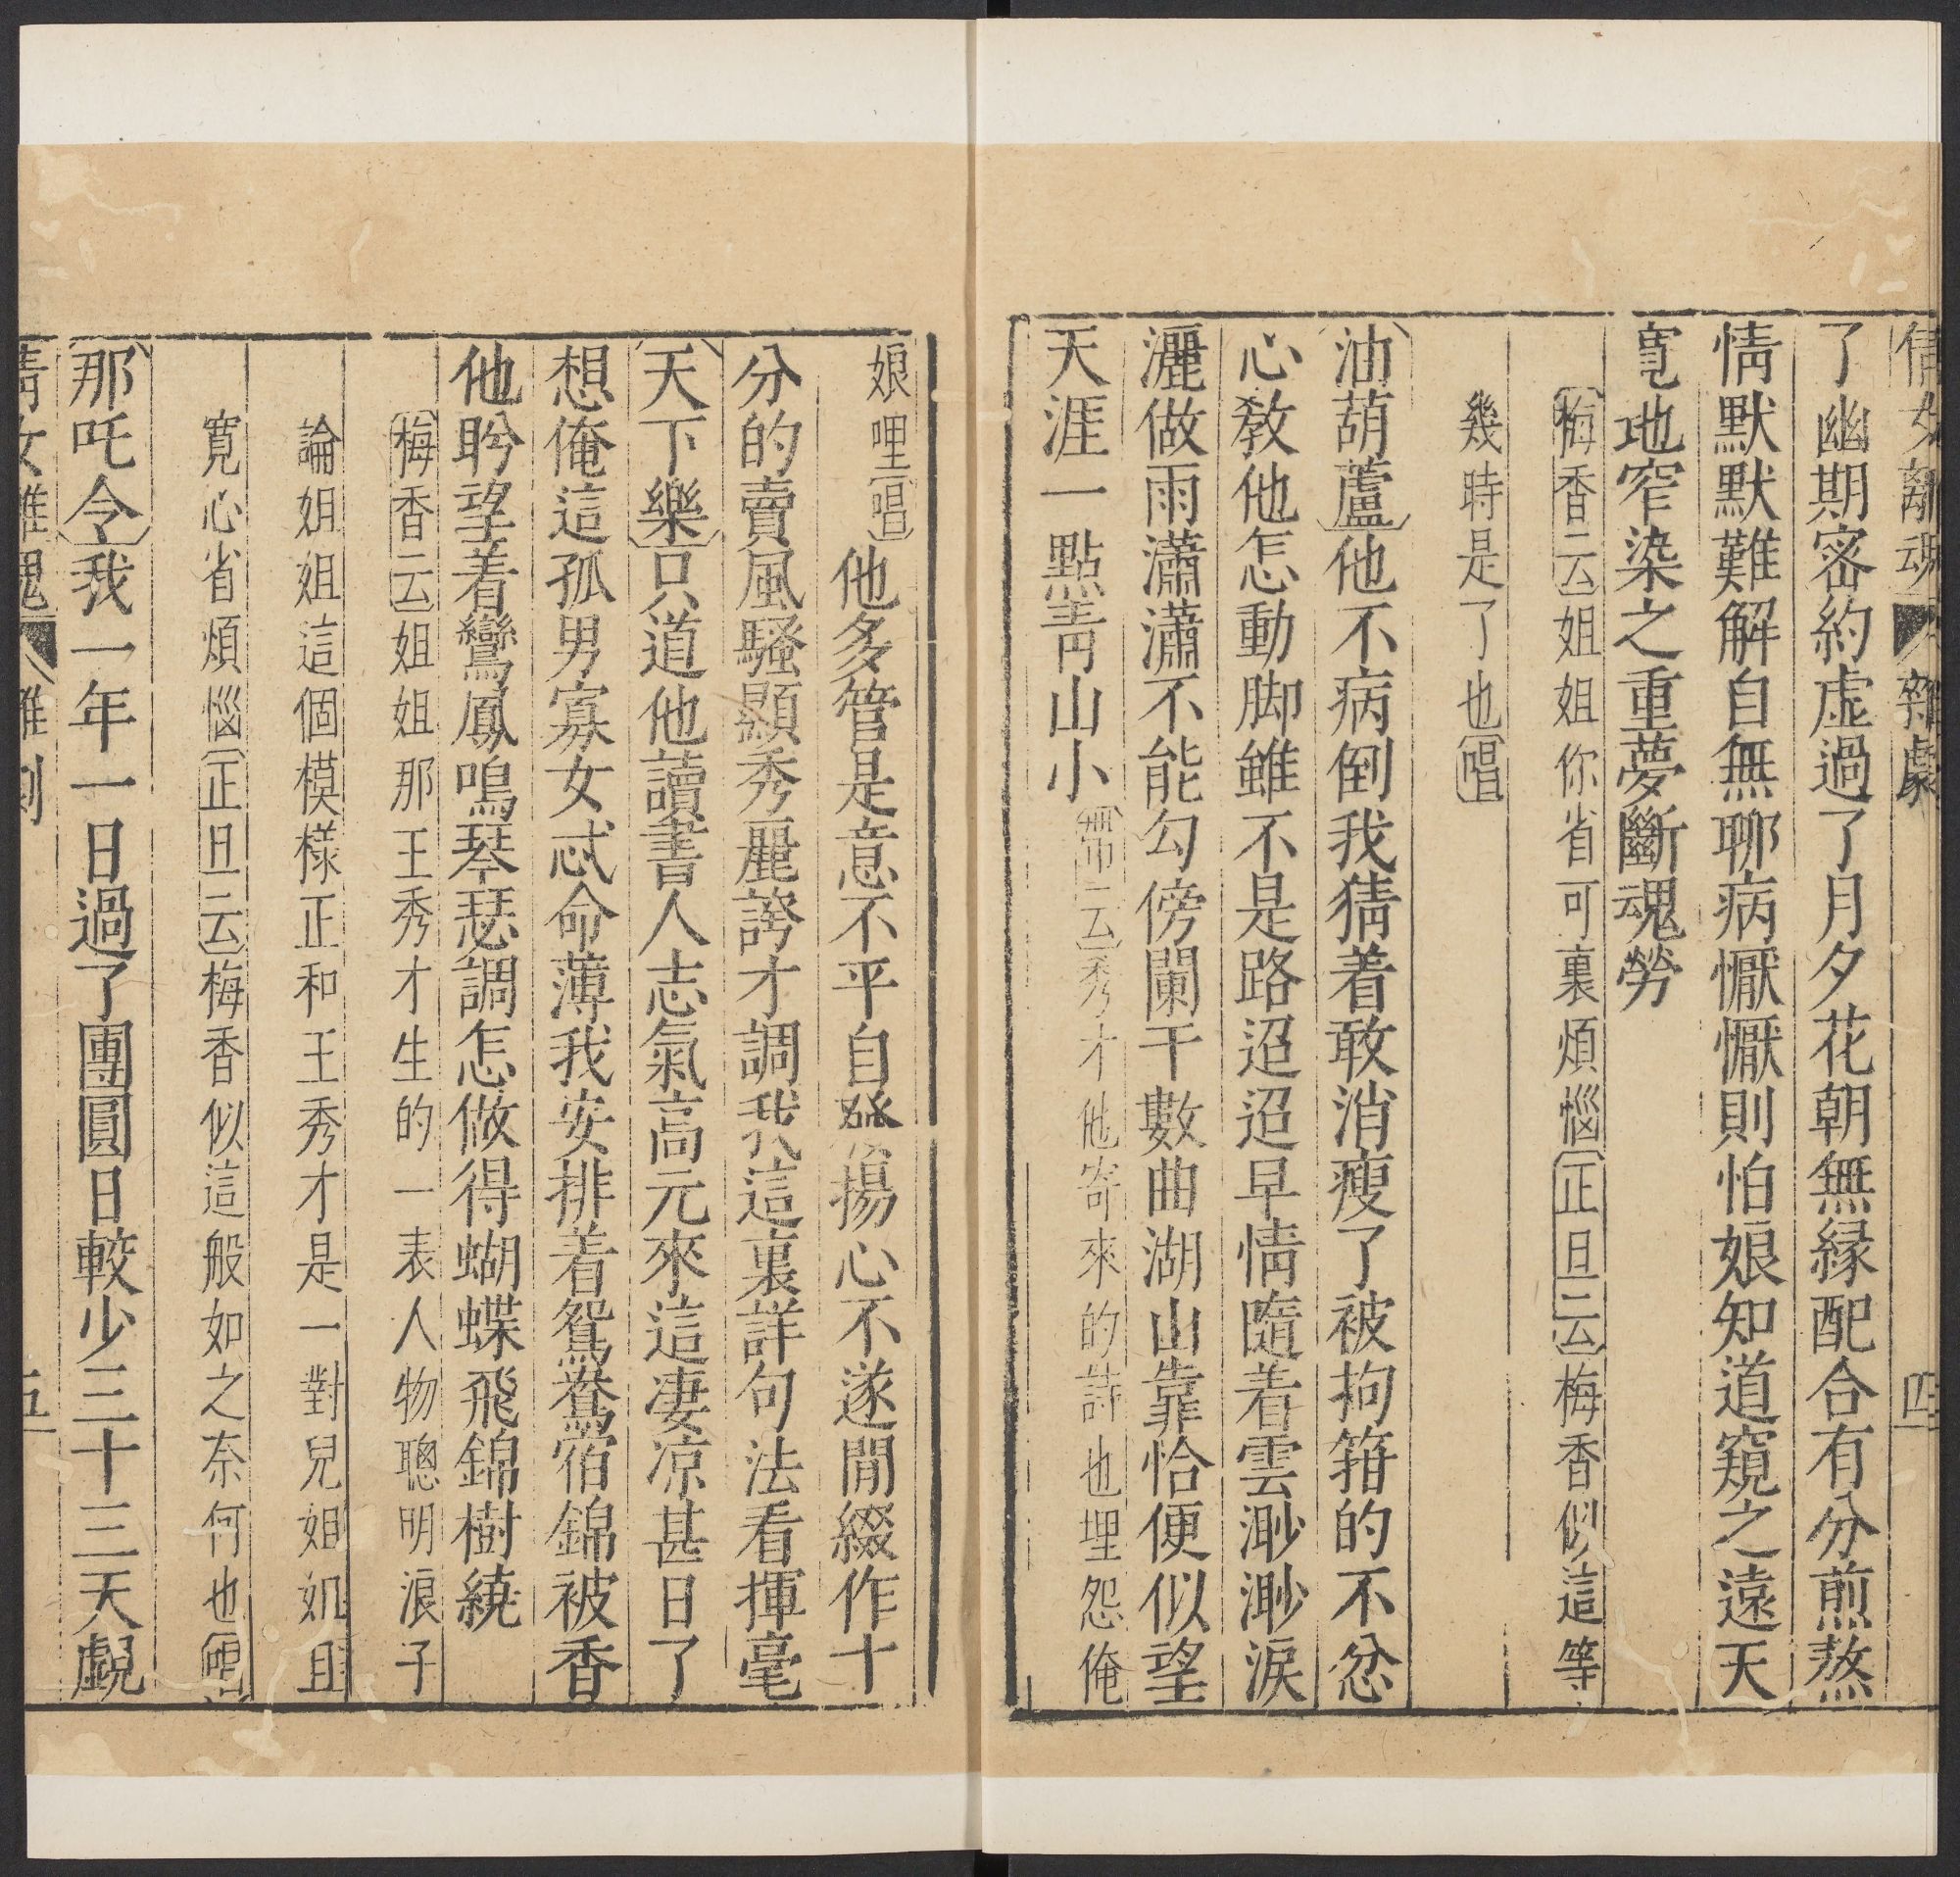 倩女離魂 雜劇 四
了幽期密約虛過了月夕花朝無縁配合有分煎熬
情默默難解自無聊病懨懨則怕娘知道窺之遠天
寛地窄染之重夢斷魂勞
梅香云姐姐你省可裏煩惱正旦云梅香似這等
幾時是了也唱
油葫蘆他不病倒我猜着敢消瘦了被拘箝的不忿
心教他怎動脚雖不是路迢迢早情隨着雲渺渺淚
灑做雨瀟瀟不能勾傍闌干數曲湖山靠恰便似望
天涯一點青山小
云秀才他寄來的詩也埋怨俺
娘哩唱他多管是意不平自發揚心不遂閒綴作十
分的賣風騷顯秀麗誇才調我這裏詳句法看揮毫
天下樂只道他讀書人志氣高元來這凄凉甚日了
想俺這孤男寡女忒命薄我安排着鴛鴦宿錦被香
他盻望着鸞鳳鳴琴瑟調怎做得蝴蝶飛錦樹繞
梅香云姐姐那王秀才生的一表人物聰明浪子
論姐姐這個模樣正和王秀才是一對兒姐姐且
寛心省煩惱正旦云梅香似這般如之奈何也唱
那吒令我一年一日過了團圓日較少三十三天覷
倩女離魂 雜劇 五